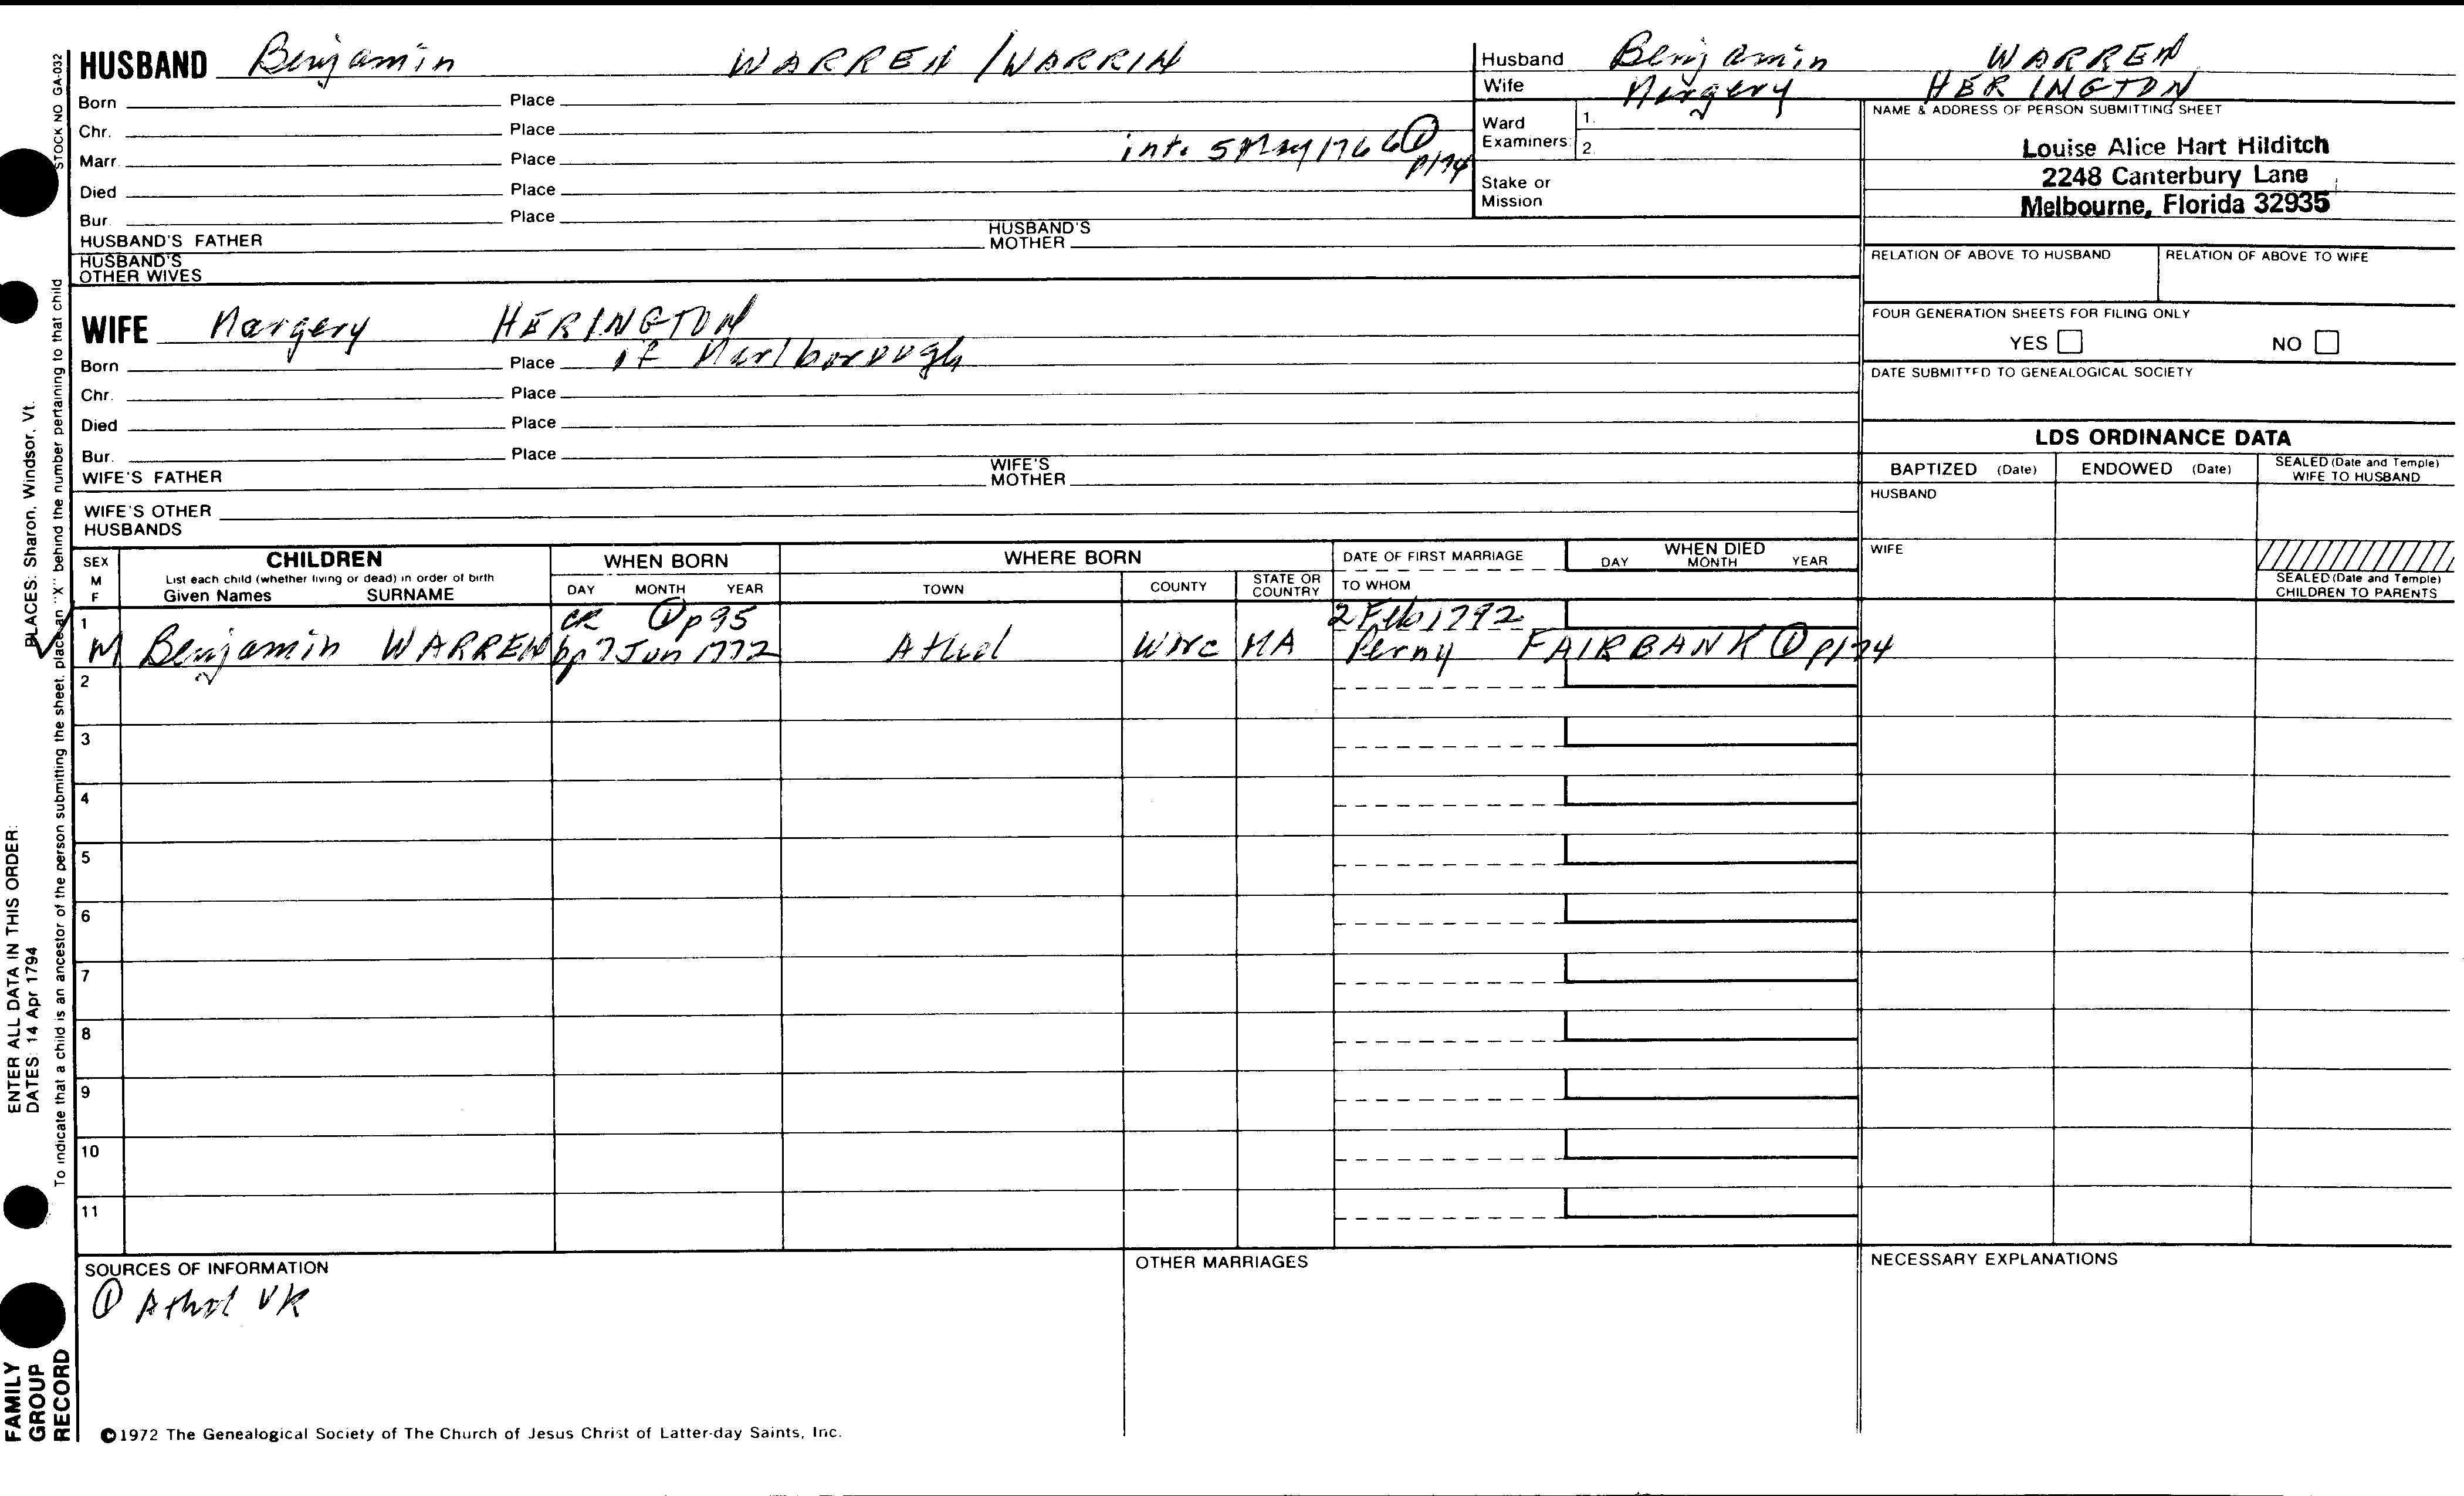 HUSBAND Benjamin WARREN / WARRIN
Born Place
Chr. Place
Marr. Place int. 5 May 1766 ① p174
Died Place
Bur. Place
HUSBAND'S FATHER HUSBAND'S MOTHER
HUSBAND'S OTHER WIVES
WIFE Margery HERINGTON
Born Place of Marlborough
Chr. Place
Died Place
Bur. Place
WIFE'S FATHER WIFE'S MOTHER
WIFE'S OTHER HUSBANDS
Husband Benjamin WARREN
Wife Margery HERINGTON
Ward Examiners: 1.
2.
Stake or Mission
NAME & ADDRESS OF PERSON SUBMITTING SHEET
Louise Alice Hart Hilditch
2248 Canterbury Lane
Melbourne, Florida 32935
RELATION OF ABOVE TO HUSBAND RELATION OF ABOVE TO WIFE
FOUR GENERATION SHEETS FOR FILING ONLY
YES NO
DATE SUBMITTED TO GENEALOGICAL SOCIETY
LDS ORDINANCE DATA
BAPTIZED (Date) ENDOWED (Date) SEALED (Date and Temple) WIFE TO HUSBAND
HUSBAND
WIFE
SEALED (Date and Temple) CHILDREN TO PARENTS
SEX M F
CHILDREN
List each child (whether living or dead) in order of birth
Given Names SURNAME
WHEN BORN
DAY MONTH YEAR
WHERE BORN
TOWN COUNTY STATE OR COUNTRY
DATE OF FIRST MARRIAGE
TO WHOM
WHEN DIED
DAY MONTH YEAR
1 CR ① p95 2 Feb 1792
M Benjamin WARREN bp 7 Jun 1772 Athol Worc MA Perny FAIRBANK ① p174
2
3
4
5
6
7
8
9
10
11
SOURCES OF INFORMATION
① Athol VR
OTHER MARRIAGES
NECESSARY EXPLANATIONS
©1972 The Genealogical Society of The Church of Jesus Christ of Latter-day Saints, Inc.
STOCK NO GA-032
To indicate that a child is an ancestor of the person submitting the sheet, place an "X" behind the number pertaining to that child
ENTER ALL DATA IN THIS ORDER:
DATES: 14 Apr 1794 PLACES: Sharon, Windsor, Vt.
FAMILY
GROUP
RECORD